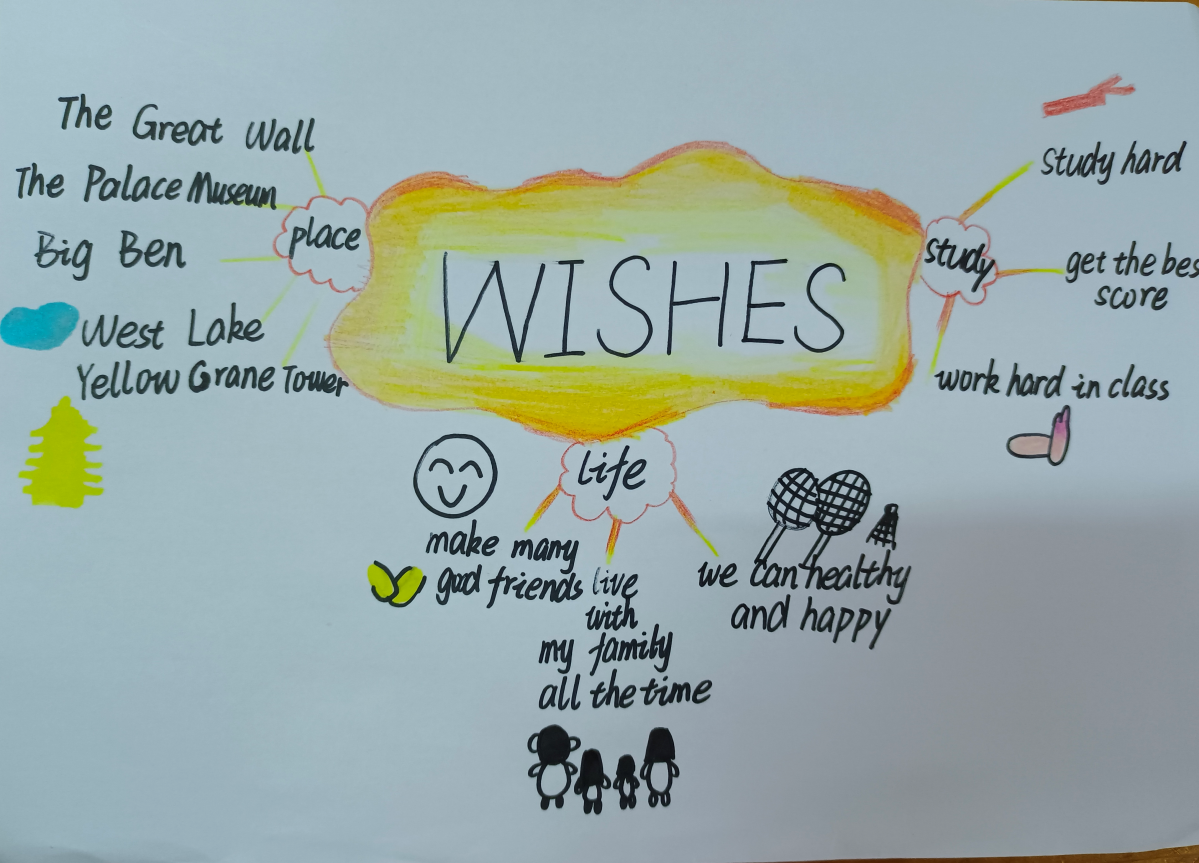 WISHES
place
The Great Wall
The Palace Museum
Big Ben
West Lake
Yellow Grane Tower
study
study hard
get the bes
score
work hard in class
life
make many
good friends
live
with
my family
all the time
we can healthy
and happy